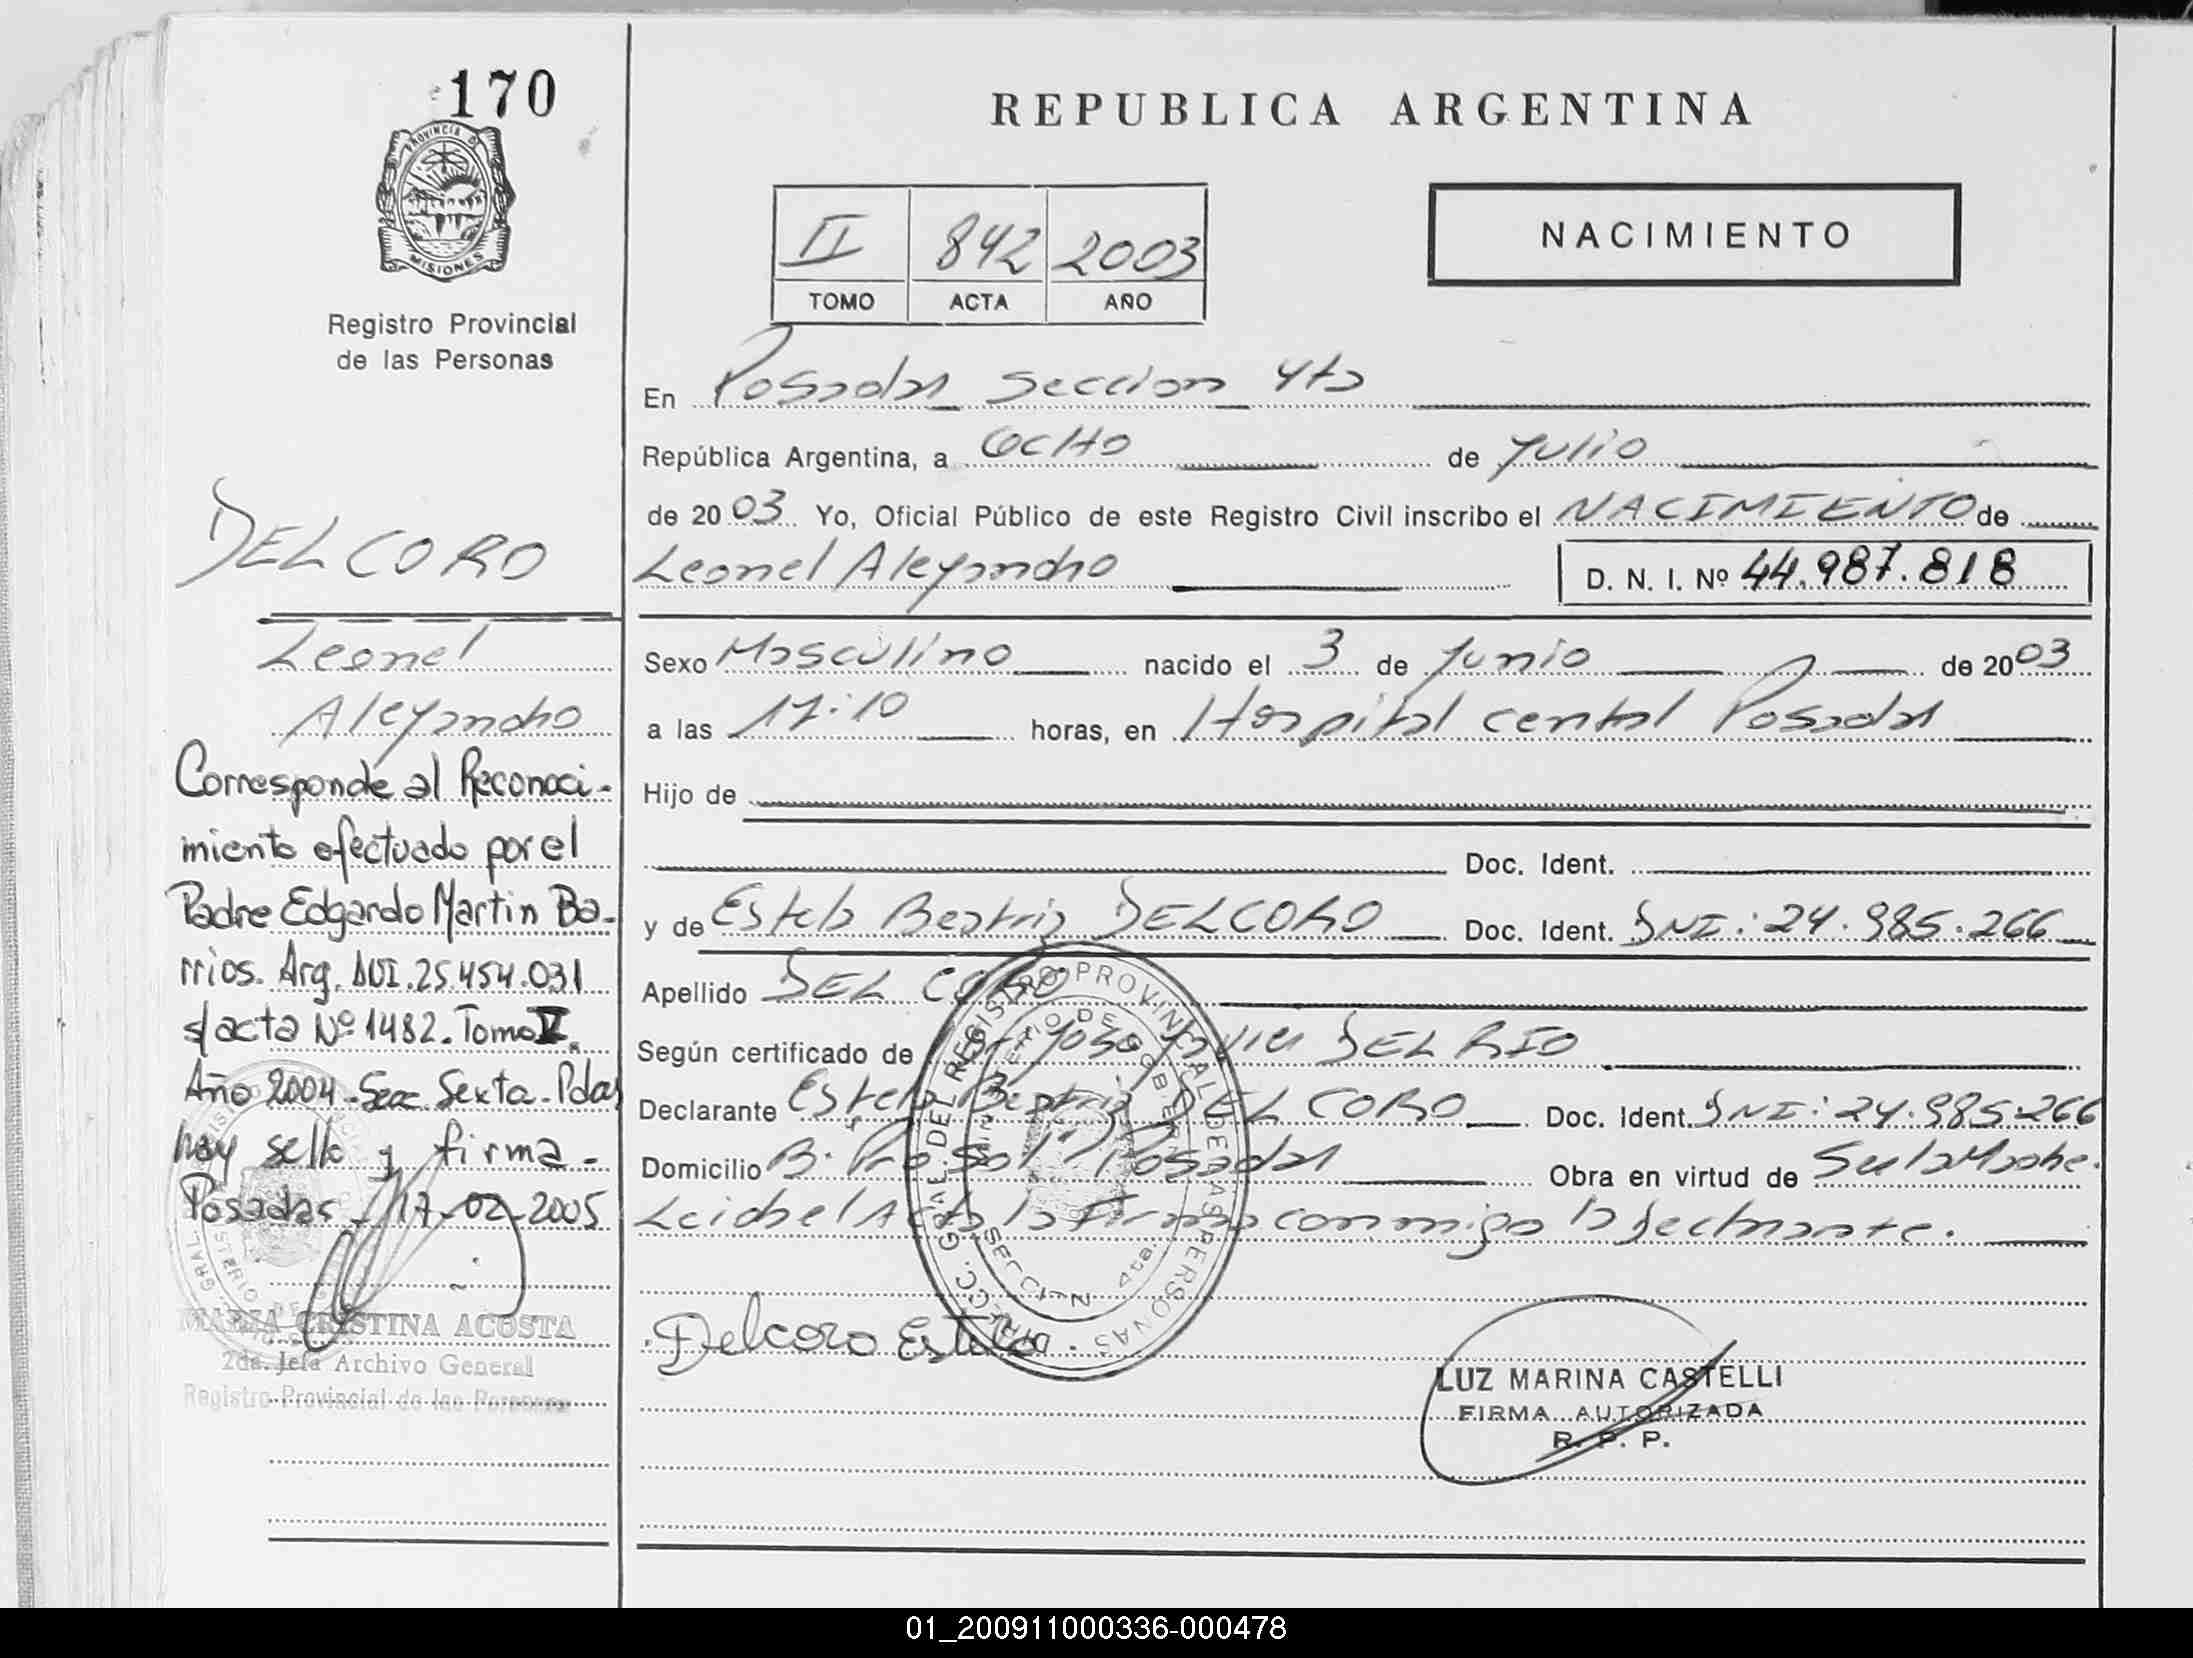 170
PROVINCIA DE
MISIONES
Registro Provincial
de las Personas
DELCORO
Leonel
Alejandro
Corresponde al Reconoci-
miento efectuado por el
Padre Edgardo Martin Ba-
rrios. Arg. DNI. 25.454.031
s/acta Nº 1482. Tomo V.
Año 2004 - Secc. Sexta - Pdas
hay sello y firma -
Posadas - 17-02-2005
MARIA CRISTINA ACOSTA
2da. Jefa Archivo General
Registro Provincial de las Personas
REPUBLICA ARGENTINA
II 842 2003
TOMO ACTA AÑO
NACIMIENTO
En Posadas seccion 4ta
República Argentina, a Ocho de Julio
de 2003 Yo, Oficial Público de este Registro Civil inscribo el NACIMIENTO de
Leonel Alejandro D. N. I. Nº 44.987.818
Sexo Masculino nacido el 3 de Junio de 2003
a las 17:10 horas, en Hospital central Posadas
Hijo de
Doc. Ident.
y de Estela Beatriz DELCORO Doc. Ident. DNI: 24.985.266
Apellido DEL CORO
Según certificado de Javier DEL RIO
Declarante Estela Beatriz DEL CORO Doc. Ident. DNI: 24.985.266
Domicilio B. Posadas Obra en virtud de Ser la Madre.
Leida el Acta la Firma conmigo la declarante.
DIRECC. GRAL. DEL REGISTRO PROVINCIAL DE LAS PERSONAS
Delcoro Estela.
LUZ MARINA CASTELLI
FIRMA AUTORIZADA
R. P. P.
01_200911000336-000478